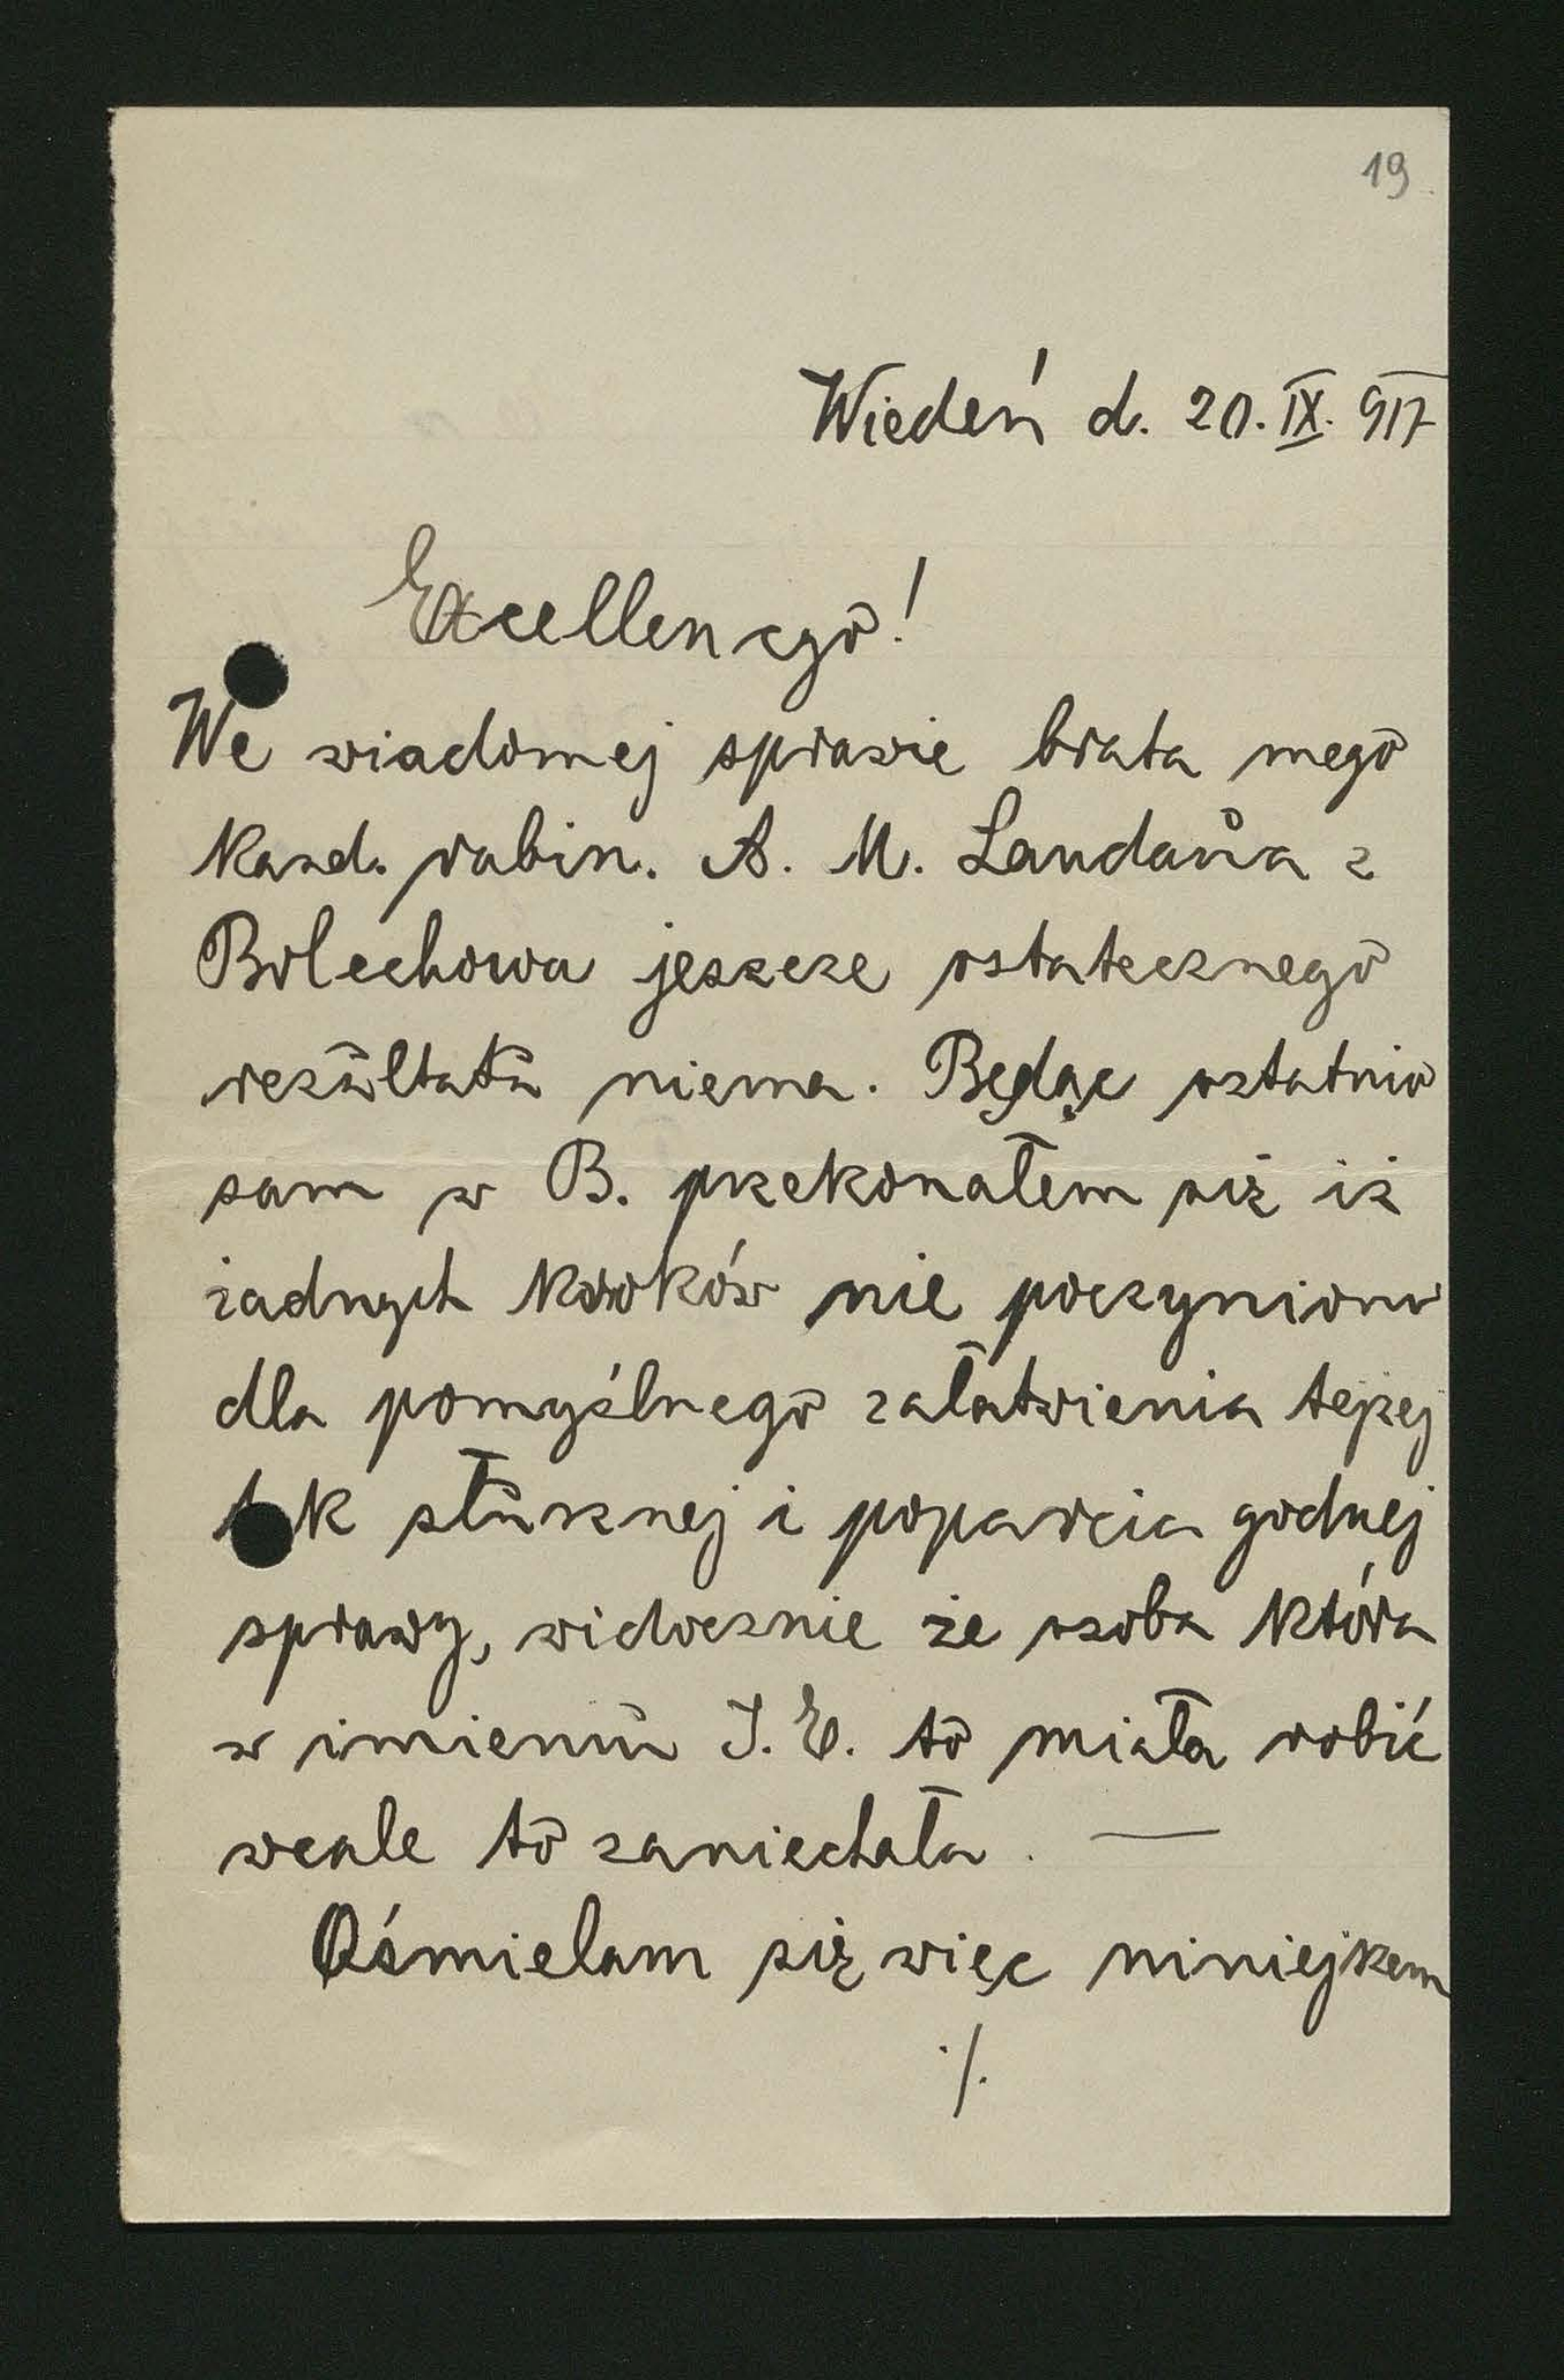 19
Wiedeń d. 20. IX. 917
Excellencyo!
We wiadomej sprawie brata mego
kand. rabin. A. M. Landaua z
Bolechowa jeszcze ostatecznego
rezultatu niema. Będąc ostatnio
sam w B. przekonałem się iż
żadnych kroków nie poczyniono
dla pomyślnego załatwienia tejże
tak słusznej i poparcia godnej
sprawy, widocznie że osoba która
w imieniu J. E. to miała robić
wcale to zaniechała. —
Ośmielam się więc niniejszem
./.